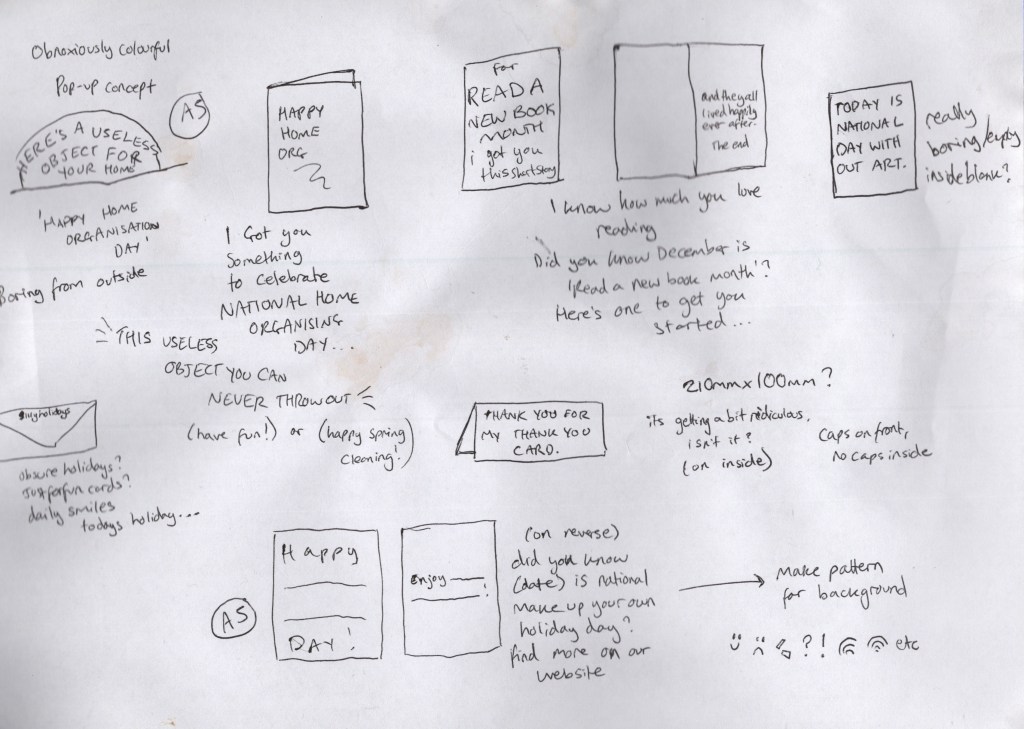 Obnoxiously colourful
Pop-up concept
A5
HERE'S A USELESS
OBJECT FOR
YOUR HOME
'HAPPY HOME
ORGANISATION
DAY'
Boring from outside
HAPPY
HOME
ORG
I Got you
Something
to celebrate
NATIONAL HOME
ORGANISING
DAY...
THIS USELESS
OBJECT YOU CAN
NEVER THROW OUT
(have fun!) or (happy spring
cleaning!)
for
READ A
NEW BOOK
MONTH
i got you
this short story
and they all
lived happily
ever after.
The end
I know how much you love
reading
Did you know December is
'Read a new book month'?
Here's one to get you
started...
TODAY IS
NATIONAL
DAY WITH
OUT ART.
really
boring/empty
inside blank?
sillyholidays
obsure holidays?
Just for fun cards?
daily smiles
todays holiday...
THANK YOU FOR
MY THANK YOU
CARD.
210mm x 100mm?
its getting a bit ridiculous,
isn't it?
(on inside)
Caps on front,
no caps inside
A5
Happy
DAY!
Enjoy
!
(on reverse)
did you know
(date) is national
make up your own
holiday day?
find more on our
website
Make pattern
for background
? ! etc